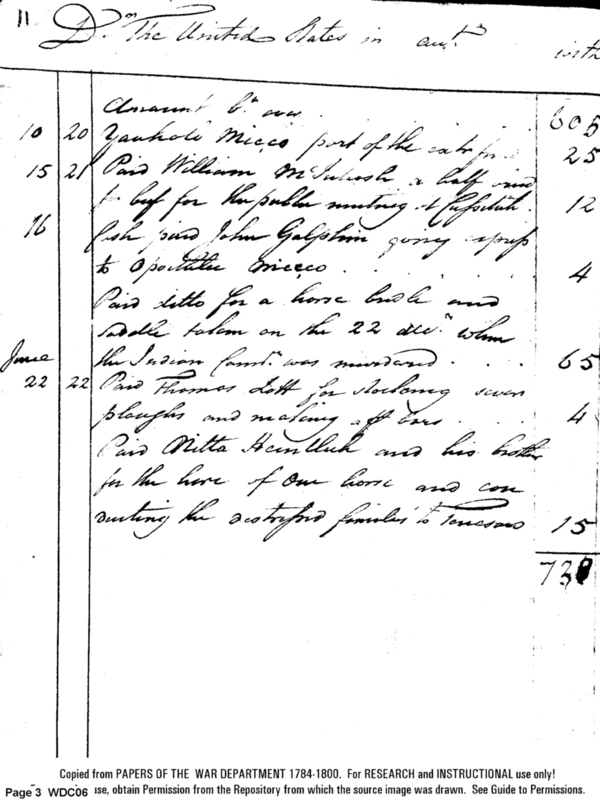 11
Dr. The United States in acct. with
Amount bt. over . . . 605
10 20 Yauholo Micco part of the 25
15 21 Paid William McIntosh a half
for beef for the public meeting at Cussetah 12
16 Cash paid John Galphin going express
to Opoithle Micco . . . . . 4
Paid ditto for a horse bridle and
saddle taken on the 22 decr. when
the Indian Camp. was murdered . . . 65
June
22 22 Paid Thomas Lott for stocking seven
ploughs and making . . . . 4
Paid Nitta Heintluk and his brother
for the hire of One horse and con
ducting the distressed families to Tenesaw 15
73
Copied from PAPERS OF THE WAR DEPARTMENT 1784-1800. For RESEARCH and INSTRUCTIONAL use only!
Page 3 WDC06 use, obtain Permission from the Repository from which the source image was drawn. See Guide to Permissions.